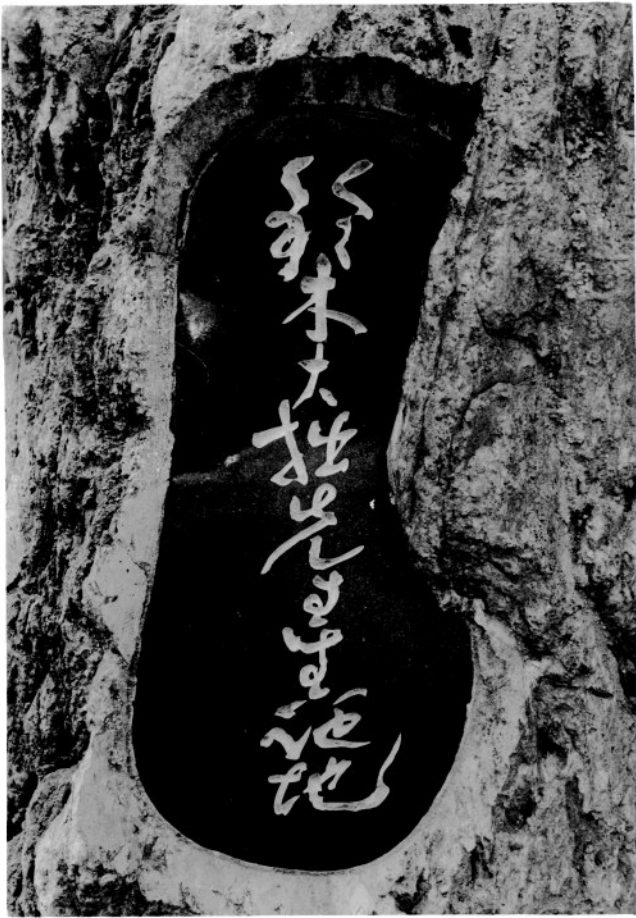 鈴木大拙先生生誕地